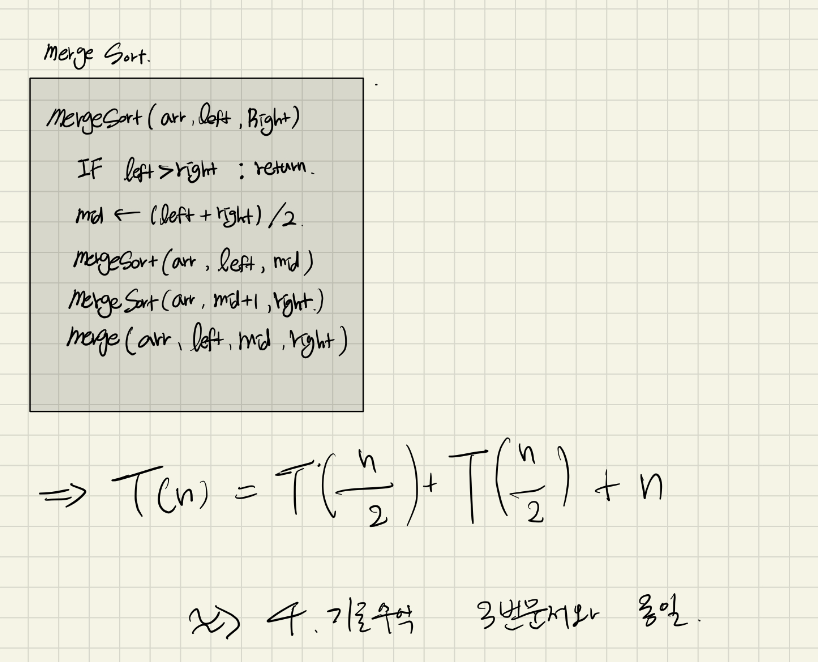 Merge Sort.
MergeSort(arr, left, Right)
IF left > right : return.
mid ← (left + right) / 2.
mergeSort(arr, left, mid)
MergeSort(arr, mid+1, right.)
merge(arr, left, mid, right)
⇒ T(n) = T(n/2) + T(n/2) + n
4. 3번문제와 동일.